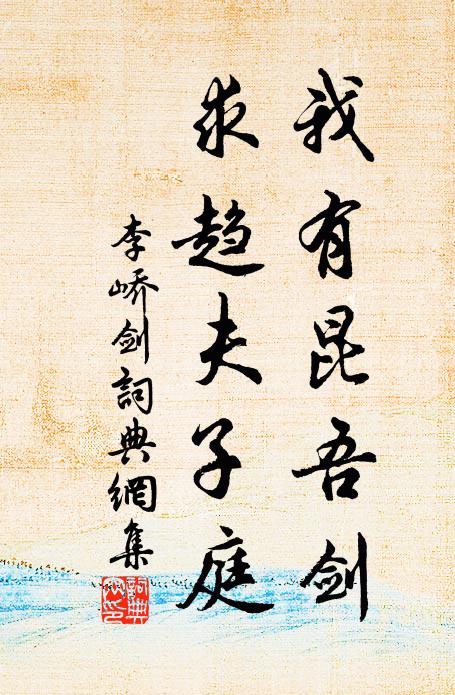 我有昆吾剑
求趋夫子庭
李峤剑詞典網集